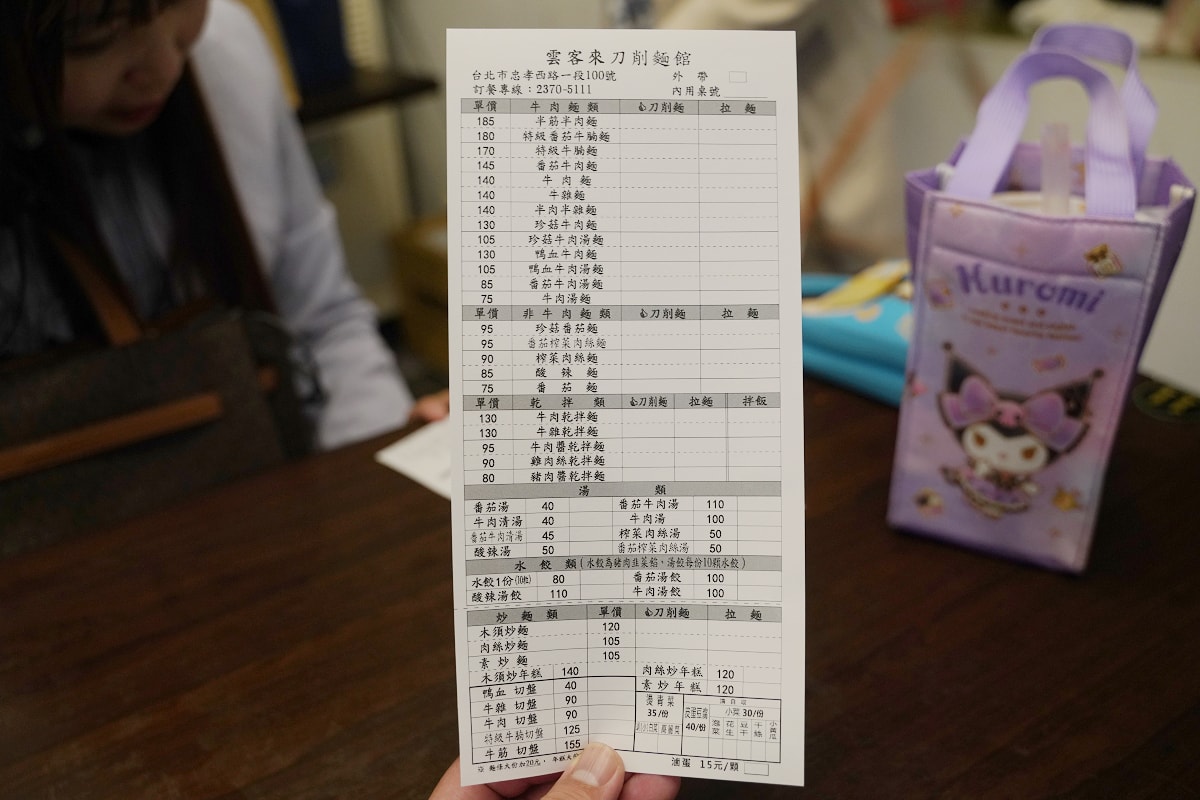 雲客來刀削麵館
台北市忠孝西路一段100號 外 帶
訂餐專線：2370-5111 內用桌號
單價 牛肉麵類 👍刀削麵 拉麵
185 半筋半肉麵
180 特級番茄牛腩麵
170 特級牛腩麵
145 番茄牛肉麵
140 牛肉麵
140 牛雜麵
140 半肉半雜麵
130 珍菇牛肉麵
105 珍菇牛肉湯麵
130 鴨血牛肉麵
105 鴨血牛肉湯麵
85 番茄牛肉湯麵
75 牛肉湯麵
單價 非牛肉麵類 👍刀削麵 拉麵
95 珍菇番茄麵
95 番茄榨菜肉絲麵
90 榨菜肉絲麵
85 酸辣麵
75 番茄麵
單價 乾拌類 👍刀削麵 拉麵 拌飯
130 牛肉乾拌麵
130 牛雜乾拌麵
95 牛肉醬乾拌麵
90 雞肉絲乾拌麵
80 豬肉醬乾拌麵
湯類
番茄湯 40 番茄牛肉湯 110
牛肉清湯 40 牛肉湯 100
番茄牛肉清湯 45 榨菜肉絲湯 50
酸辣湯 50 番茄榨菜肉絲湯 50
水餃類(水餃為豬肉韭菜餡，湯餃每份10顆水餃)
水餃1份(10粒) 80 番茄湯餃 100
酸辣湯餃 110 牛肉湯餃 100
炒麵類 單價 👍刀削麵 拉麵
木須炒麵 120
肉絲炒麵 105
素炒麵 105
木須炒年糕 140 肉絲炒年糕 120
鴨血 切盤 40 素炒年糕 120
牛雜 切盤 90
牛肉 切盤 90
特級牛腩切盤 125
牛筋 切盤 155
燙青菜
35/份
皮蛋豆腐
40/份
小菜 30/份
泡菜 花生 豆干 干絲 小黃瓜
※ 麵條大份加20元，年糕大份
滷蛋 15元/顆
Kuromi